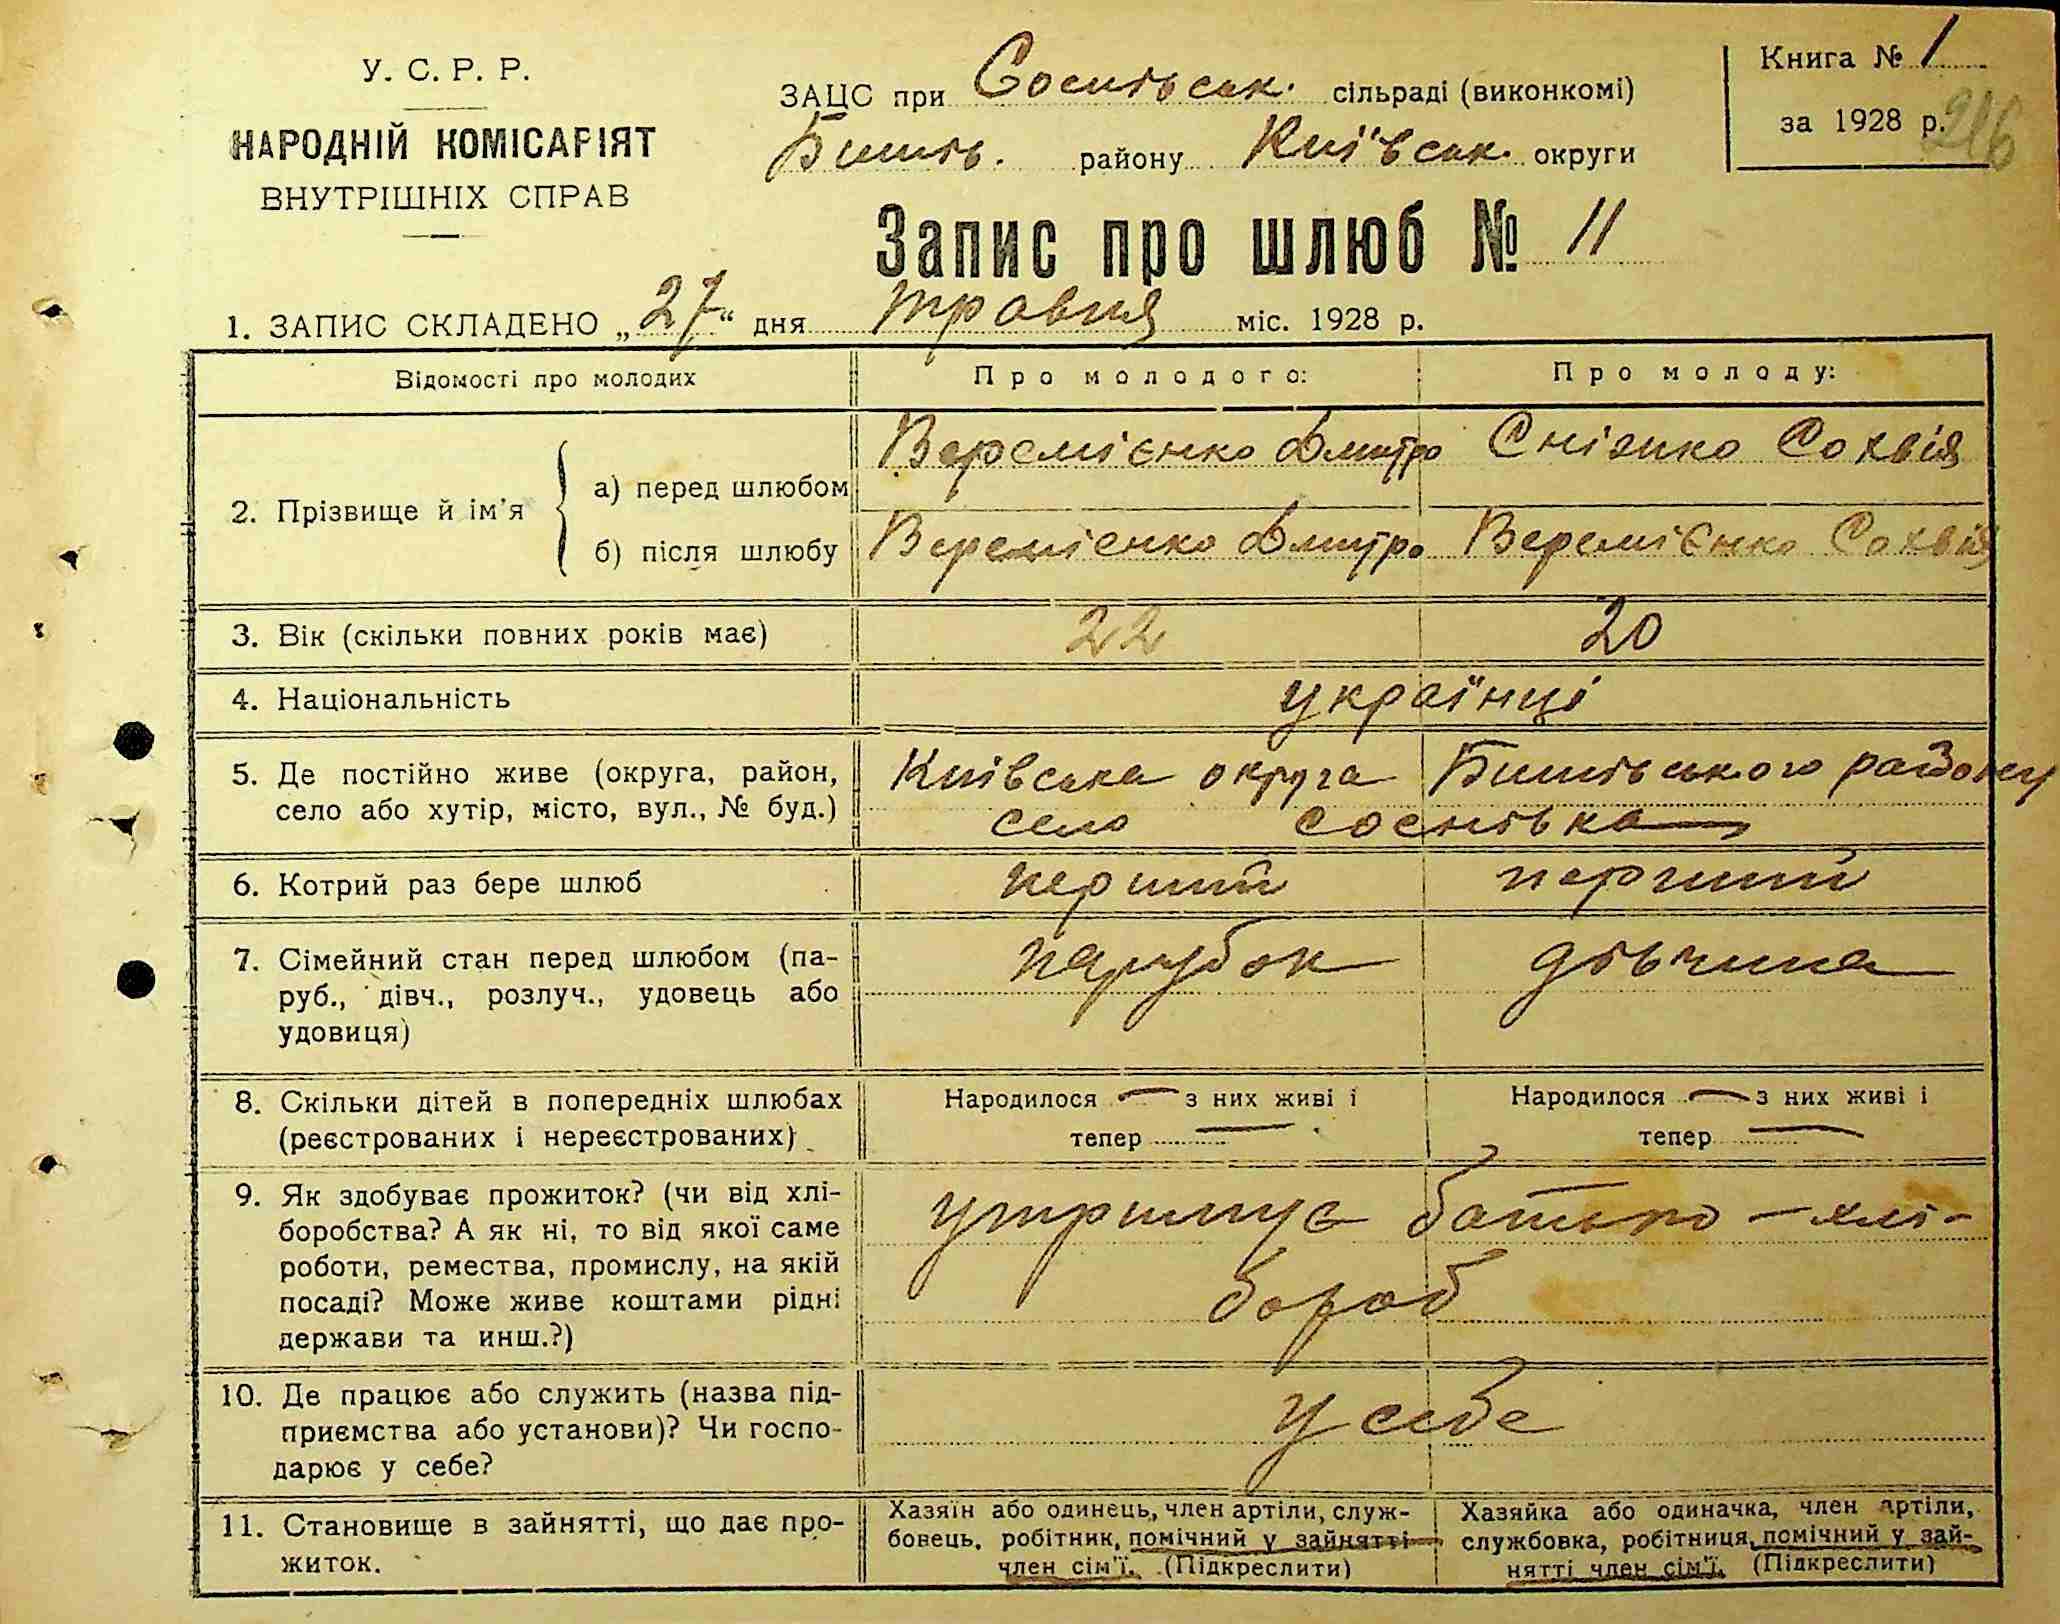 У. С. Р. Р.
НАРОДНІЙ КОМІСАРІЯТ
ВНУТРІШНІХ СПРАВ
ЗАЦС при Соснівськ. сільраді (виконкомі)
Бишів. району Київськ. округи
Книга № 1
за 1928 р.
216
Запис про шлюб № 11
1. ЗАПИС СКЛАДЕНО „27“ дня травня міс. 1928 р.
Відомості про молодих Про молодого: Про молоду:
2. Прізвище й ім'я
а) перед шлюбом Веремієнко Дмитро Снізико Сохвія
б) після шлюбу Веремієнко Дмитро Веремієнко Сохвія
3. Вік (скільки повних років має) 22 20
4. Національність українці
5. Де постійно живе (округа, район, Київська округа Бишівського району
село або хутір, місто, вул., № буд.) село Соснівка
6. Котрий раз бере шлюб перший перший
7. Сімейний стан перед шлюбом (па- парубок дівчина
руб., дівч., розлуч., удовець або
удовиця)
8. Скільки дітей в попередніх шлюбах Народилося — з них живі і Народилося — з них живі і
(реєстрованих і нереєстрованих) тепер — тепер —
9. Як здобуває прожиток? (чи від хлі- утримує батько – хлі-
боробства? А як ні, то від якої саме
роботи, ремества, промислу, на якій бороб
посаді? Може живе коштами рідні
держави та инш.?)
10. Де працює або служить (назва під- у себе
приємства або установи)? Чи госпо-
дарює у себе?
11. Становище в зайнятті, що дає про-
житок.
Хазяїн або одинець, член артіли, служ-
бовець, робітник, помічний у зайнятті
член сім'ї. (Підкреслити)
Хазяйка або одиначка, член артіли,
службовка, робітниця, помічний у зай-
нятті член сім'ї. (Підкреслити)